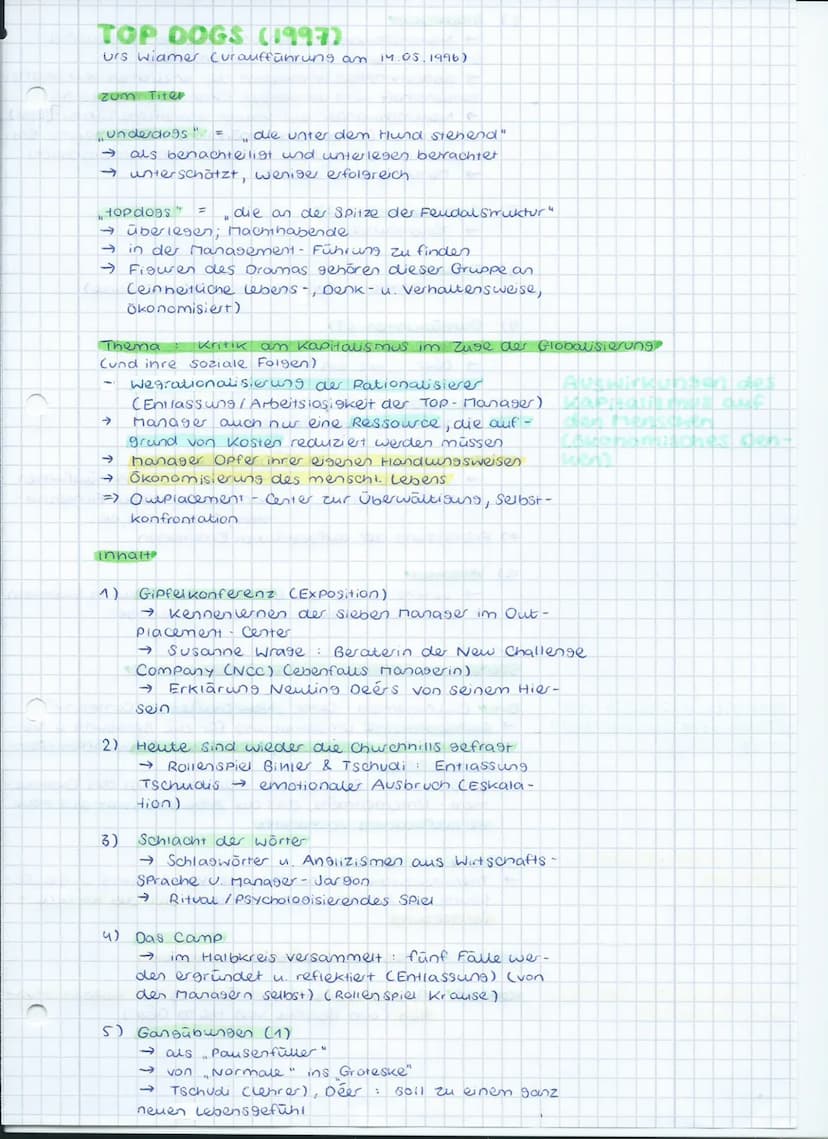 TOP DOGS (1997)
Urs Widmer (Uraufführung am 14.05.1996)
zum Titel
„underdogs" = „die unter dem Hund stehend"
→ als benachteiligt und unterlegen betrachtet
→ unterschätzt, weniger erfolgreich
„topdogs" = „die an der Spitze der Feudalstruktur"
→ überlegen; Machthabende
→ in der Management-Führung zu finden
→ Figuren des Dramas gehören dieser Gruppe an
(einheitliche Lebens-, Denk- u. Verhaltensweise,
ökonomisiert)
Thema : Kritik am Kapitalismus im Zuge der Globalisierung
(und ihre soziale Folgen)
- Wegrationalisierung der Rationalisierer
(Entlassung/Arbeitslosigkeit der Top-Manager)
→ Manager auch nur eine Ressource, die auf-
grund von Kosten reduziert werden müssen
→ Manager Opfer ihrer eigenen Handlungsweisen
→ Ökonomisierung des menschl. Lebens
=> Outplacement-Center zur Überwältigung, Selbst-
konfrontation
Auswirkungen des
Kapitalismus auf
den Menschen
(ökonomisches Den-
ken)
Inhalt
1) Gipfelkonferenz (Exposition)
→ Kennenlernen der sieben Manager im Out-
placement-Center
→ Susanne Wrage : Beraterin der New Challenge
Company (NCC) (ebenfalls Managerin)
→ Erklärung Neuling Deérs von seinem Hier-
sein
2) Heute sind wieder die Churchills gefragt
→ Rollenspiel Bihler & Tschudi : Entlassung
Tschudis → emotionaler Ausbruch (Eskala-
tion)
3) Schlacht der Wörter
→ Schlagwörter u. Anglizismen aus Wirtschafts-
sprache u. Manager-Jargon
→ Ritual/Psychologisierendes Spiel
4) Das Camp
→ im Halbkreis versammelt : fünf Fälle wer-
den ergründet u. reflektiert (Entlassung) (von
den Managern selbst) (Rollenspiel Krause)
5) Gangübungen (1)
→ als „Pausenfüller"
→ von „Normale" ins „Groteske"
→ Tschudi (Lehrer), Déer : soll zu einem ganz
neuen Lebensgefühl